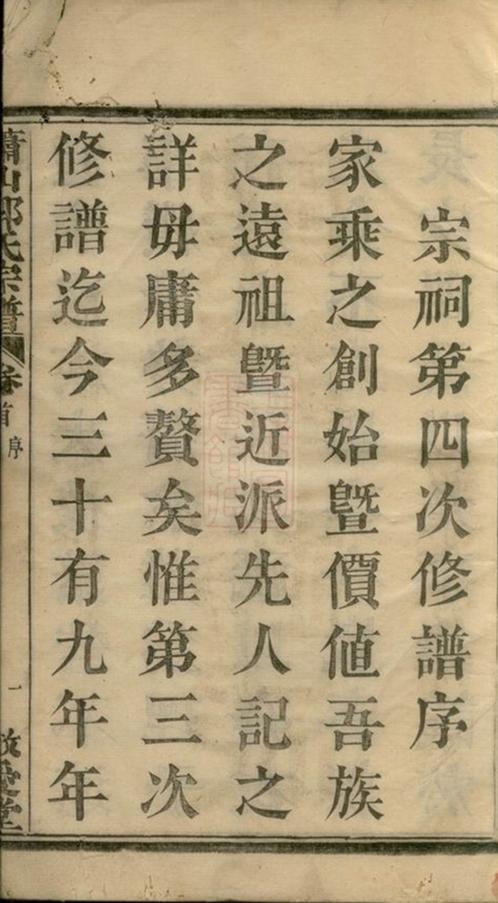 宗祠第四次修譜序
家乘之創始曁價値吾族
之遠祖曁近派先人記之
詳毋庸多贅矣惟第三次
修譜迄今三十有九年年
蕭山郎氏宗譜 卷首 序 一